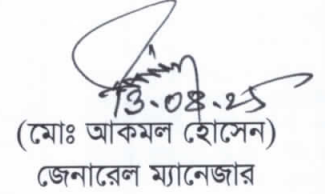 13.08.25
(মোঃ আকমল হোসেন)
জেনারেল ম্যানেজার